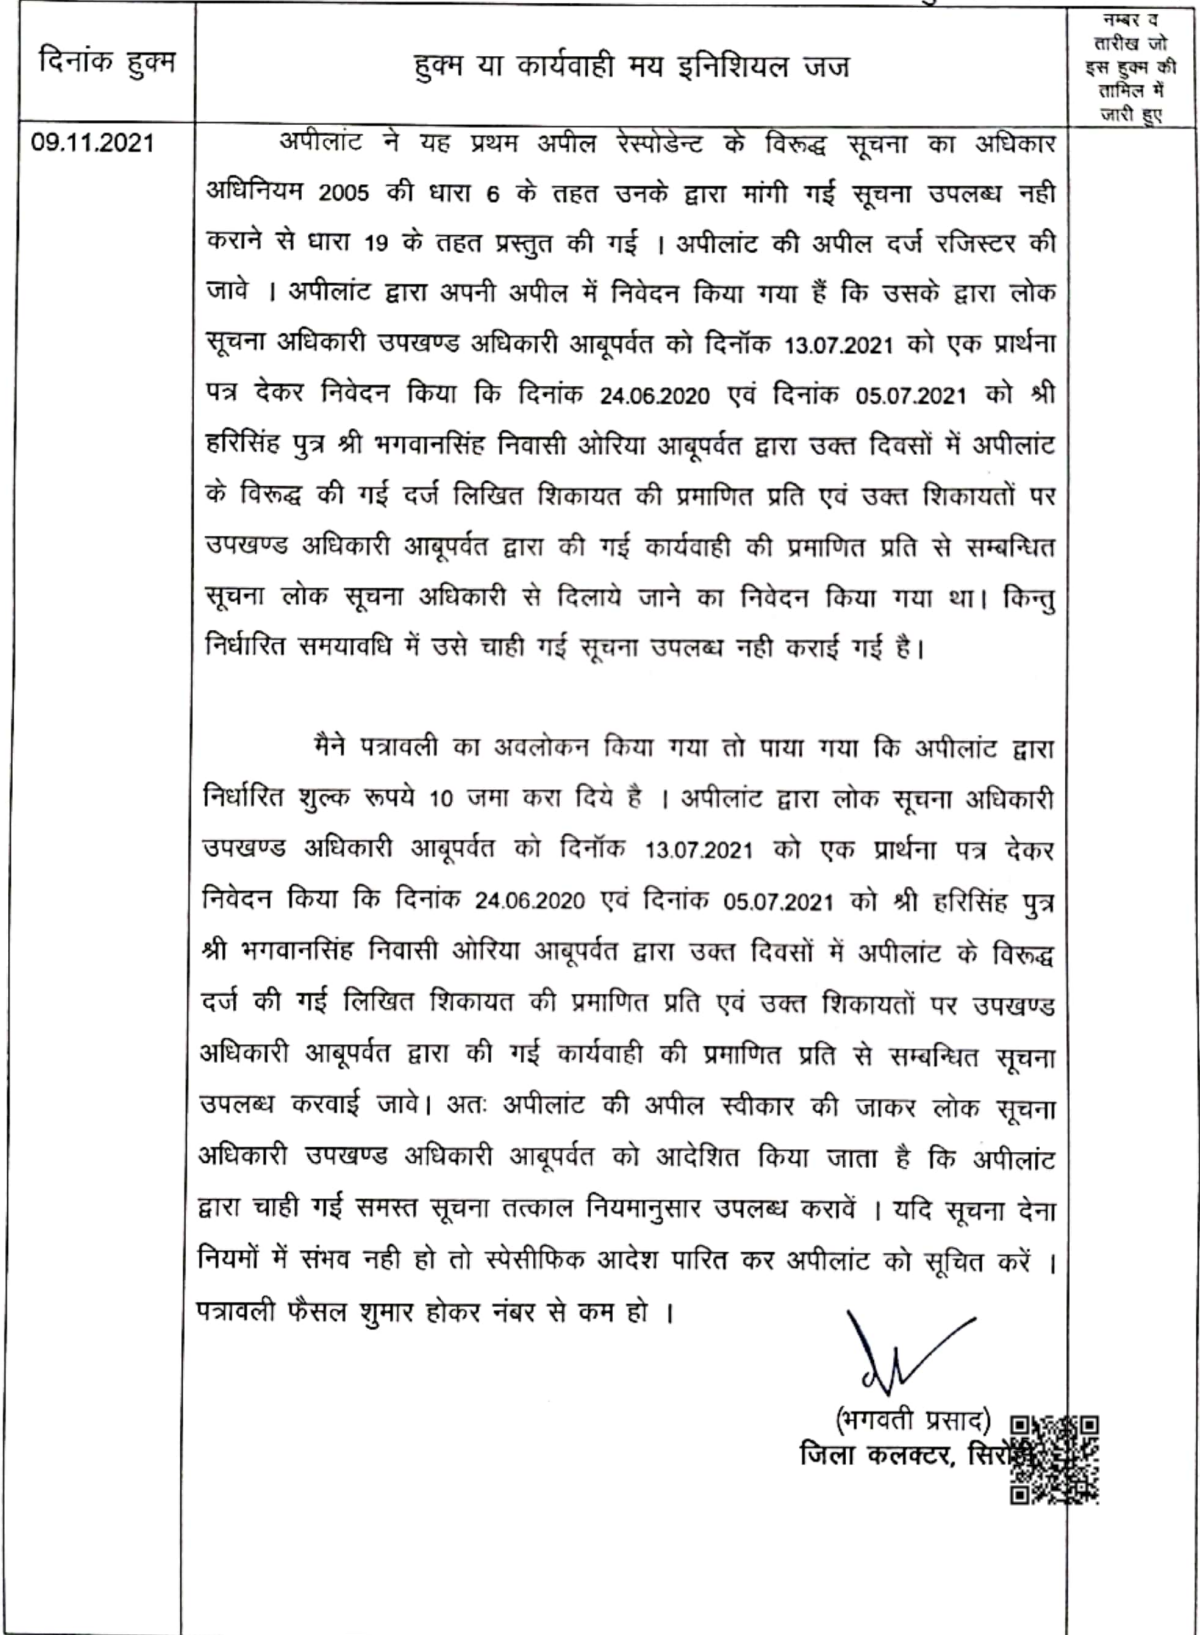 दिनांक हुक्म
हुक्म या कार्यवाही मय इनिशियल जज
नम्बर व
तारीख जो
इस हुक्म की
तामिल में
जारी हुए
09.11.2021
अपीलांट ने यह प्रथम अपील रेस्पोडेन्ट के विरूद्ध सूचना का अधिकार
अधिनियम 2005 की धारा 6 के तहत उनके द्वारा मांगी गई सूचना उपलब्ध नही
कराने से धारा 19 के तहत प्रस्तुत की गई । अपीलांट की अपील दर्ज रजिस्टर की
जावे । अपीलांट द्वारा अपनी अपील में निवेदन किया गया हैं कि उसके द्वारा लोक
सूचना अधिकारी उपखण्ड अधिकारी आबूपर्वत को दिनॉक 13.07.2021 को एक प्रार्थना
पत्र देकर निवेदन किया कि दिनांक 24.06.2020 एवं दिनांक 05.07.2021 को श्री
हरिसिंह पुत्र श्री भगवानसिंह निवासी ओरिया आबूपर्वत द्वारा उक्त दिवसों में अपीलांट
के विरूद्ध की गई दर्ज लिखित शिकायत की प्रमाणित प्रति एवं उक्त शिकायतों पर
उपखण्ड अधिकारी आबूपर्वत द्वारा की गई कार्यवाही की प्रमाणित प्रति से सम्बन्धित
सूचना लोक सूचना अधिकारी से दिलाये जाने का निवेदन किया गया था। किन्तु
निर्धारित समयावधि में उसे चाही गई सूचना उपलब्ध नही कराई गई है।
मैने पत्रावली का अवलोकन किया गया तो पाया गया कि अपीलांट द्वारा
निर्धारित शुल्क रूपये 10 जमा करा दिये है । अपीलांट द्वारा लोक सूचना अधिकारी
उपखण्ड अधिकारी आबूपर्वत को दिनॉक 13.07.2021 को एक प्रार्थना पत्र देकर
निवेदन किया कि दिनांक 24.06.2020 एवं दिनांक 05.07.2021 को श्री हरिसिंह पुत्र
श्री भगवानसिंह निवासी ओरिया आबूपर्वत द्वारा उक्त दिवसों में अपीलांट के विरूद्ध
दर्ज की गई लिखित शिकायत की प्रमाणित प्रति एवं उक्त शिकायतों पर उपखण्ड
अधिकारी आबूपर्वत द्वारा की गई कार्यवाही की प्रमाणित प्रति से सम्बन्धित सूचना
उपलब्ध करवाई जावे। अतः अपीलांट की अपील स्वीकार की जाकर लोक सूचना
अधिकारी उपखण्ड अधिकारी आबूपर्वत को आदेशित किया जाता है कि अपीलांट
द्वारा चाही गई समस्त सूचना तत्काल नियमानुसार उपलब्ध करावें । यदि सूचना देना
नियमों में संभव नही हो तो स्पेसीफिक आदेश पारित कर अपीलांट को सूचित करें ।
पत्रावली फैसल शुमार होकर नंबर से कम हो ।
(भगवती प्रसाद)
जिला कलक्टर,